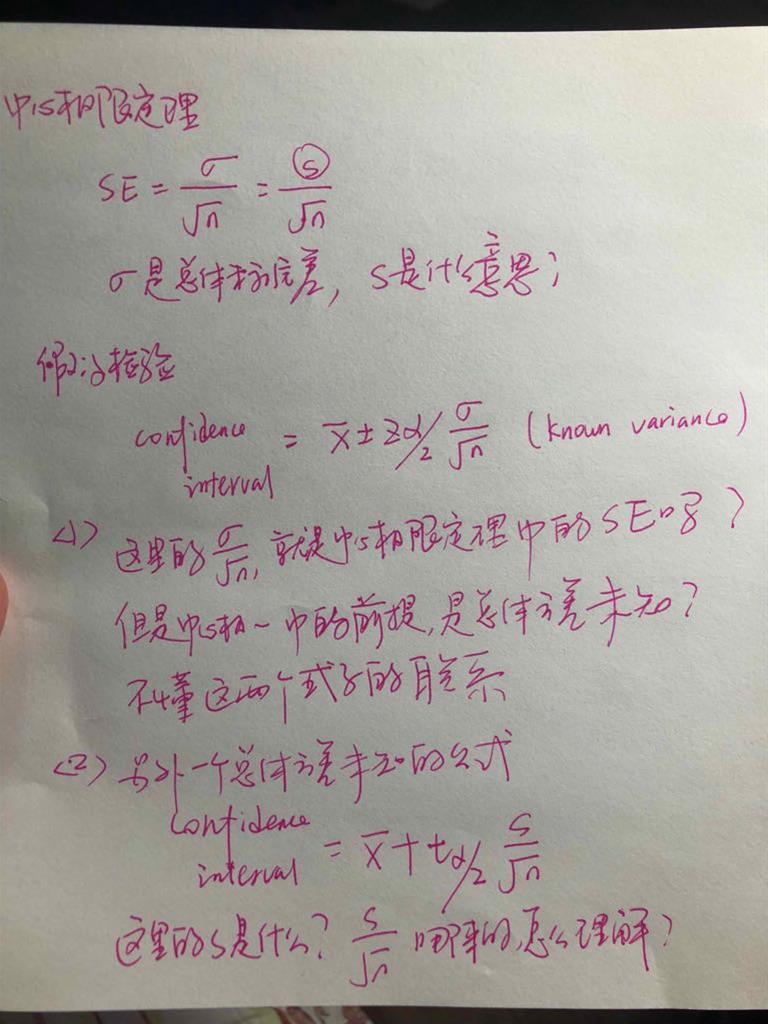 中心极限定理
SE = σ/√n = s/√n
σ是总体标准差, s是什么意思;
假设检验
confidence interval = x̄ ± zα/2 σ/√n (known variance)
<1> 这里的 σ/√n, 就是中心极限定理中的SE吗?
但是中心极~中的前提,是总体方差未知?
不懂这两个式子的联系
<2> 另外一个总体方差未知的公式
confidence interval = x̄ + tα/2 s/√n
这里的s是什么? s/√n 哪来的,怎么理解?